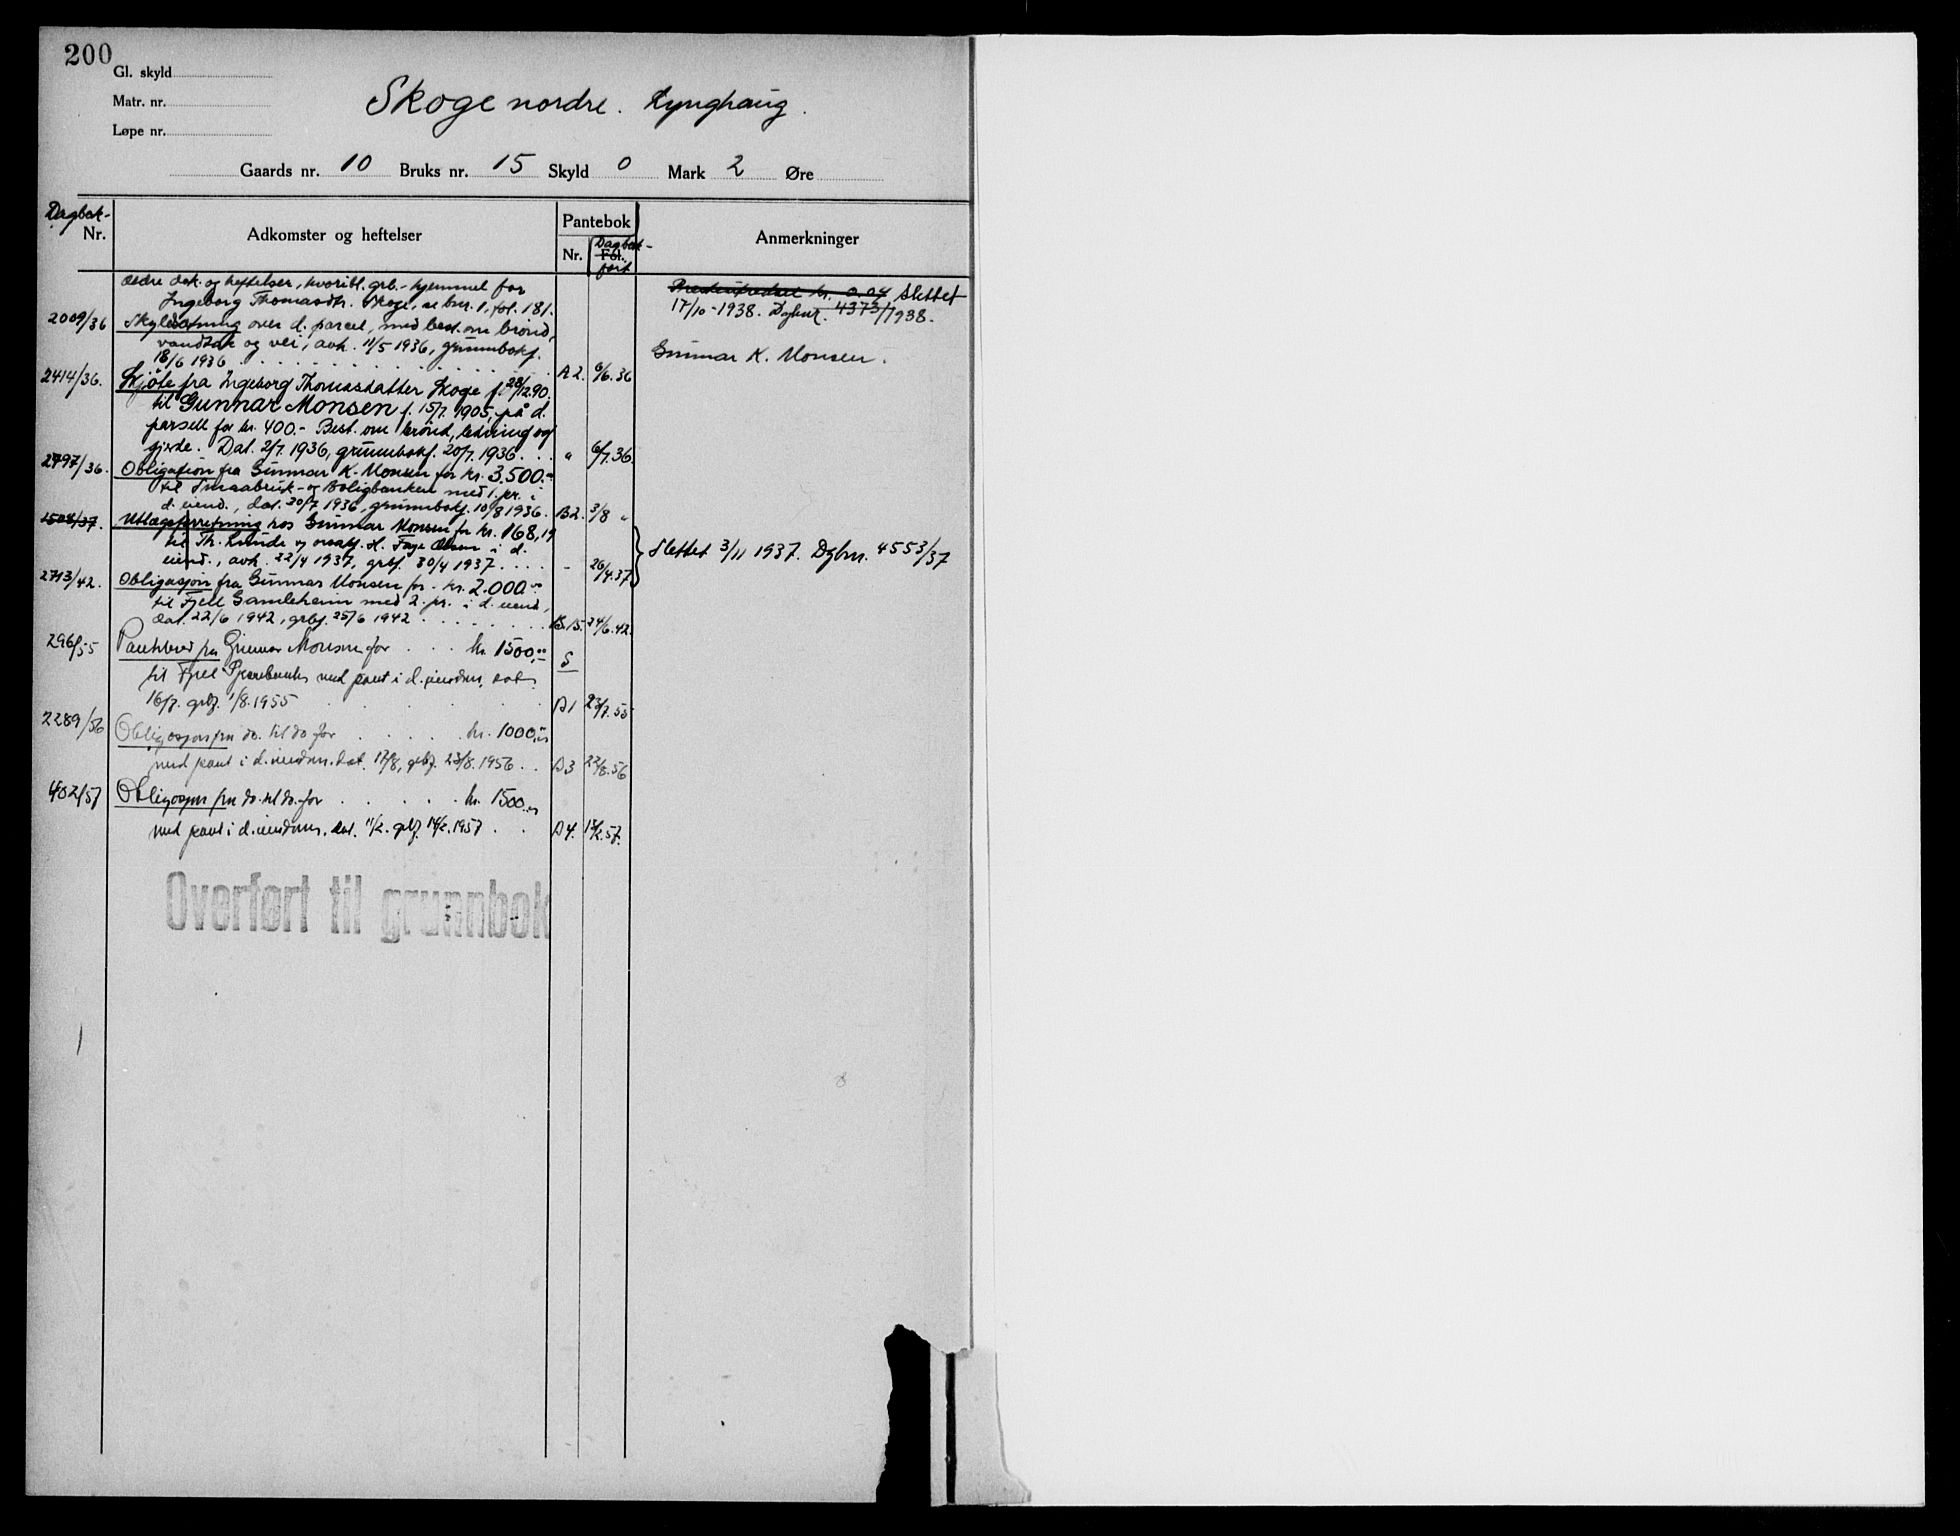 200
Gl. skyld
Matr. nr.
Løpe nr.
Skoge nordre. Lynghaug.
Gaards nr. 10 Bruks nr. 15 Skyld 0 Mark 2 Øre
Dagbok-
Nr.
Adkomster og heftelser
Pantebok
Nr.
Dagbok-
Fol.
ført
Anmerkninger
Ældre dok. og heftelser, hvoribl. grb.-hjemmel for
Ingeborg Thomasdtr. Skoge, se bnr. 1, fol. 181.
kr. 0.04 Slettet
17/10-1938. Dgbnr. 4373/1938.
2009/36 Skyldsetning over d. parcel, med best. om brønd,
vandtak og vei, avh. 11/5 1936, grunnbokf.
18/6 1936 A2. 6/6.36
Gunnar K. Monsen.
2414/36. Skjøte fra Ingeborg Thomasdatter Skoge f. 28/12.90.
til Gunnar Monsen f. 15/7. 1905, på d.
parsell for kr. 400.- Best. om brønd, ledning og
gjerde. Dat. 2/7. 1936, grunnbokf. 20/7. 1936 " 6/7.36.
2797/36. Obligation fra Gunnar K. Monsen for kr. 3.500.-
til Smaabruk- og Boligbanken med 1. pr. i
d. eiend., dat. 30/7 1936, grunnbokf. 10/8 1936. B2. 3/8 "
1508/37. Utlægsforretning hos Gunnar Monsen for kr. 168,19
til Th. Lunde og orsakf. H. Faye Olsen i d.
eiend., avh. 22/4 1937, grbf. 30/4 1937 - 26/4.37
Slettet 3/11 1937. Dgbnr. 4553/37
2713/42. Obligasjon fra Gunnar Monsen for kr. 2.000
til Fjell Gamleheim med 2. pr. i d. eiend,
dat. 22/6 1942, grbf. 25/6 1942 B.15. 24/6.42.
296/55 Pantebrev fra Gunnar Monsen for kr. 1500,00 S
til Fjell Sparebank med pant i d. eiendom, dat.
16/7. grbf. 1/8. 1955 A1 23/7.55
2289/56 Obligasjon fra do. til do for kr. 1000,00
med pant i d. eiendom. dat. 17/8, grbf. 23/8. 1956 A3 22/8.56
402/57 Obligasjon fra do. til do. for kr. 1500,00
med pant i d. eiendom. dat. 11/2. grbf. 14/2. 1957 A4. 12/2.57.
Overført til grunnbok